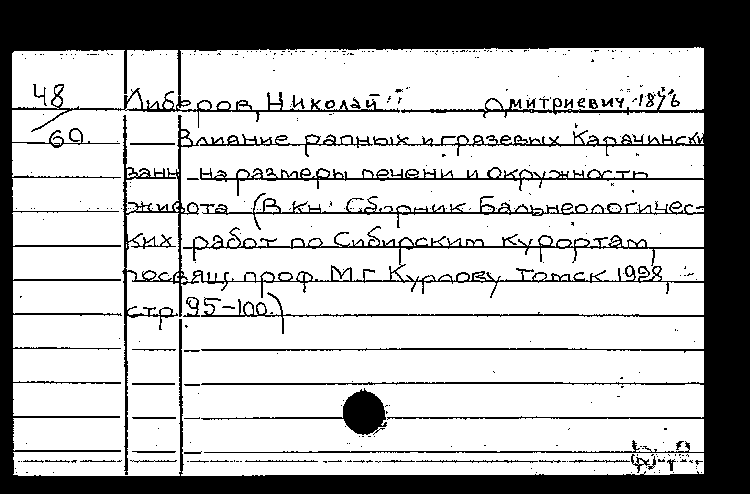 48
Либеров, Николай Дмитриевич,
60. Влияние рапных и грязевых Карачински
ванн на размеры печени и окружность
живота (В кн: Сборник Бальнеологичес-
ких работ по Сибирским курортам,
посвящ. проф. М.Г. Курлову. Томск
стр. 95-100.)